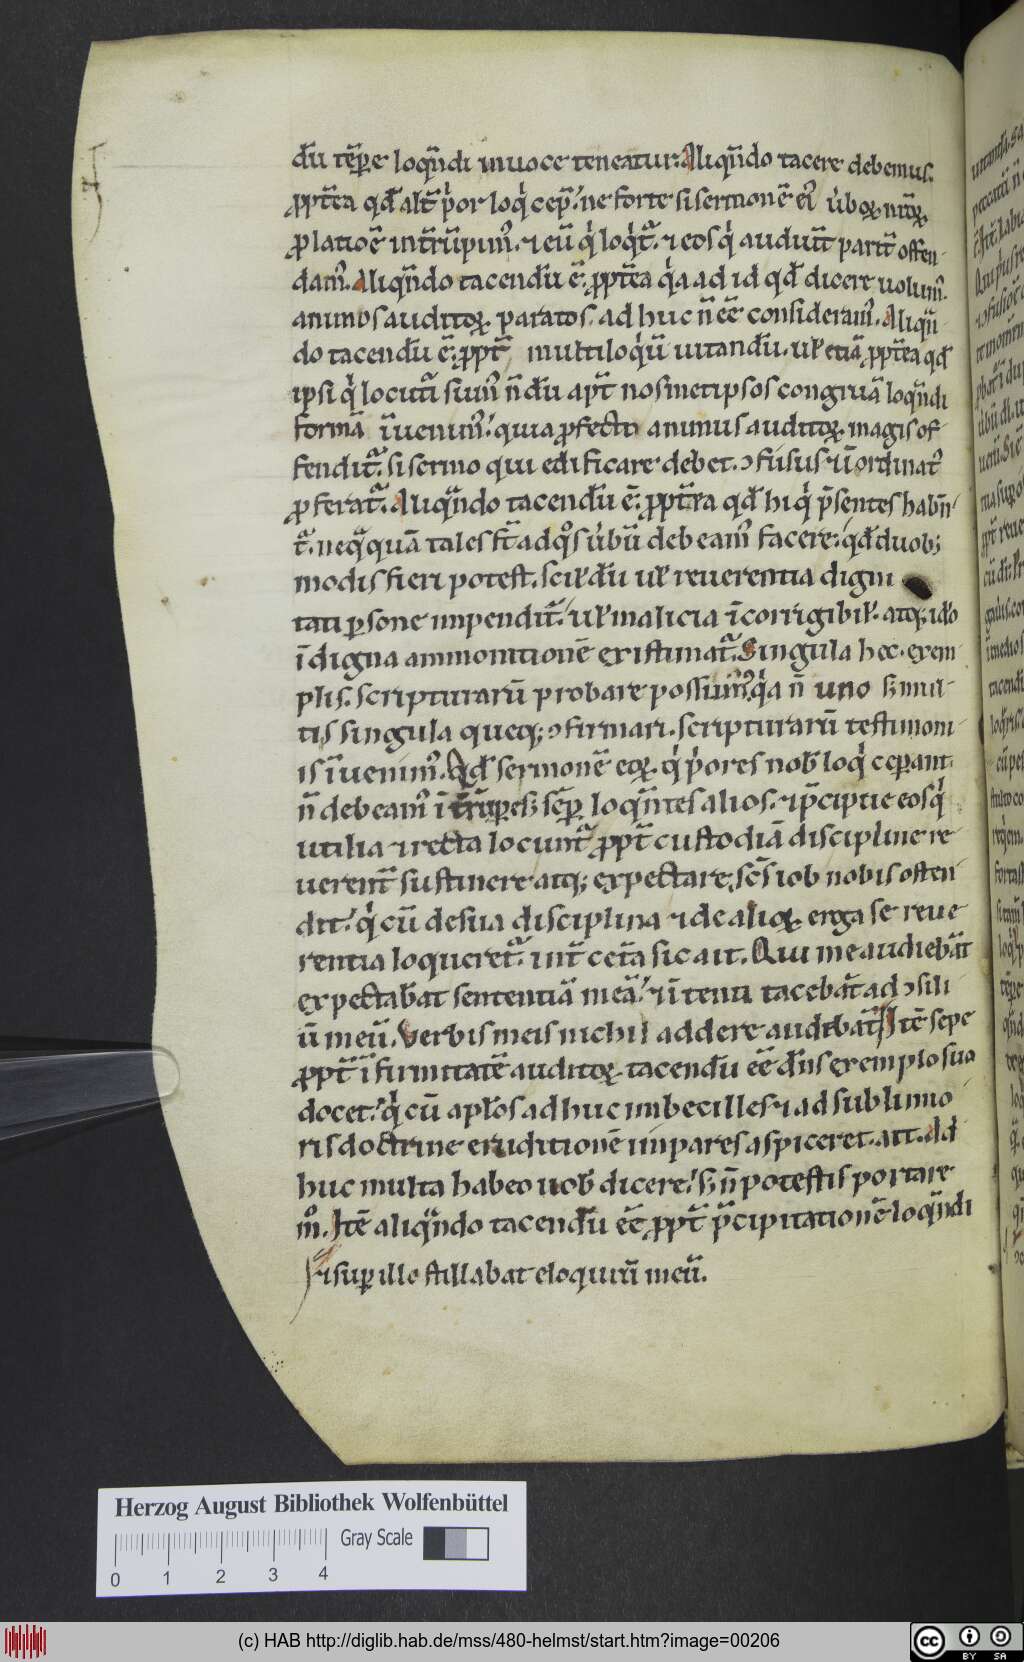 dũ tẽpe loqñdi in uoce teneatur. Aliqñdo tacere debemus.
ꝓpt̃ea qđ alt̃ p̾or loq̇ cep̃. ne forte si sermonẽ ei᷒ ũboꝝ nr̃oꝝ
ꝓlatiõe int̃rũpim᷒. ⁊ eũ q̇ loq̇t᷑. ⁊ eos q̇ audiũt part̃ offen
dam᷒. Aliqñdo tacendũ ẽ. ꝓpt̃ea q̇a ad id qđ dicere uolum᷒.
animos auditoꝝ paratos. ad huc ñ eẽ consideram᷒. Aliqñ
do tacendũ ẽ. ꝓpt̃ multiloq̇ũ uitandũ. uł etiã ꝓpt̃ea qđ
ipsi q̇ locuti᷑ sum᷒ ñdũ apt̃ nosmetipsos congruã loqñdi
formã ĩuenim᷒. quia ꝓfecto animus auditoꝝ magis of
fendit᷑. si sermo qui edificare debet. ꝯfusus ⁊ ĩordinat᷒
ꝓferat᷑. Aliqñdo tacendũ ẽ. ꝓpt̃ea qđ hi q̇ p̃sentes habñ
t᷑. neq̃quã tales st̃ ad q̊s ũbũ debeam᷒ facere. qđ duob;
modis fieri potest. scił dũ uł reuerentia digni
tati ꝑsone inpendit᷑. uł malicia ĩcorrigibił. atq; ido
ĩdigna ammonitionẽ existimat᷑. Singula hec. exem
plis. scripturarũ probare possum᷒. q̇a ñ uno s; mul
tis singula queq; ꝯfirmari. scripturarũ testimoni
is ĩuenim᷒. Qđ sermonẽ eoꝝ. q̇ p̾ores nob̃ loq̇ ceperant
ñ debeam᷒ ĩt̃rũpe. s; sẽp loqñtes alios. ⁊ p̃cipue eos q̇
utilia ⁊ recta locunt᷑ ꝓpt̃ custodiã discipline re
uerent̃ sustinere atq; expectare. sc̃s iob nobis osten
dit. q̇ cũ de sua disciplina ⁊ de alioꝝ erga se reue
rentia loqueret᷑. int̃ cet̃a sic ait. Qui me audiebãt
expectabãt sententiã meã. ⁊ ĩtenti tacebãt ad ꝯsili
ũ meũ. Verbis meis nichil addere audebãt. Itẽ sepe
ꝓpt̃ ĩfirmitatẽ auditoꝝ tacendũ eẽ dñs exemplo suo
docet. q̇ cũ apłos ad huc imbecilles ⁊ ad sublimio
ris doctrine eruditionẽ impares aspiceret. ait. Ad
huc multa habeo uob̃ dicere. s; ñ potestis portare
m᷒. Itẽ aliqñdo tacendũ eẽ ꝓpt̃ p̃cipitationẽ loqñdi
⁊ sup illo stillabat eloquiũ meũ.
Herzog August Bibliothek Wolfenbüttel
Gray Scale
0 1 2 3 4
(c) HAB http://diglib.hab.de/mss/480-helmst/start.htm?image=00206
cc BY SA